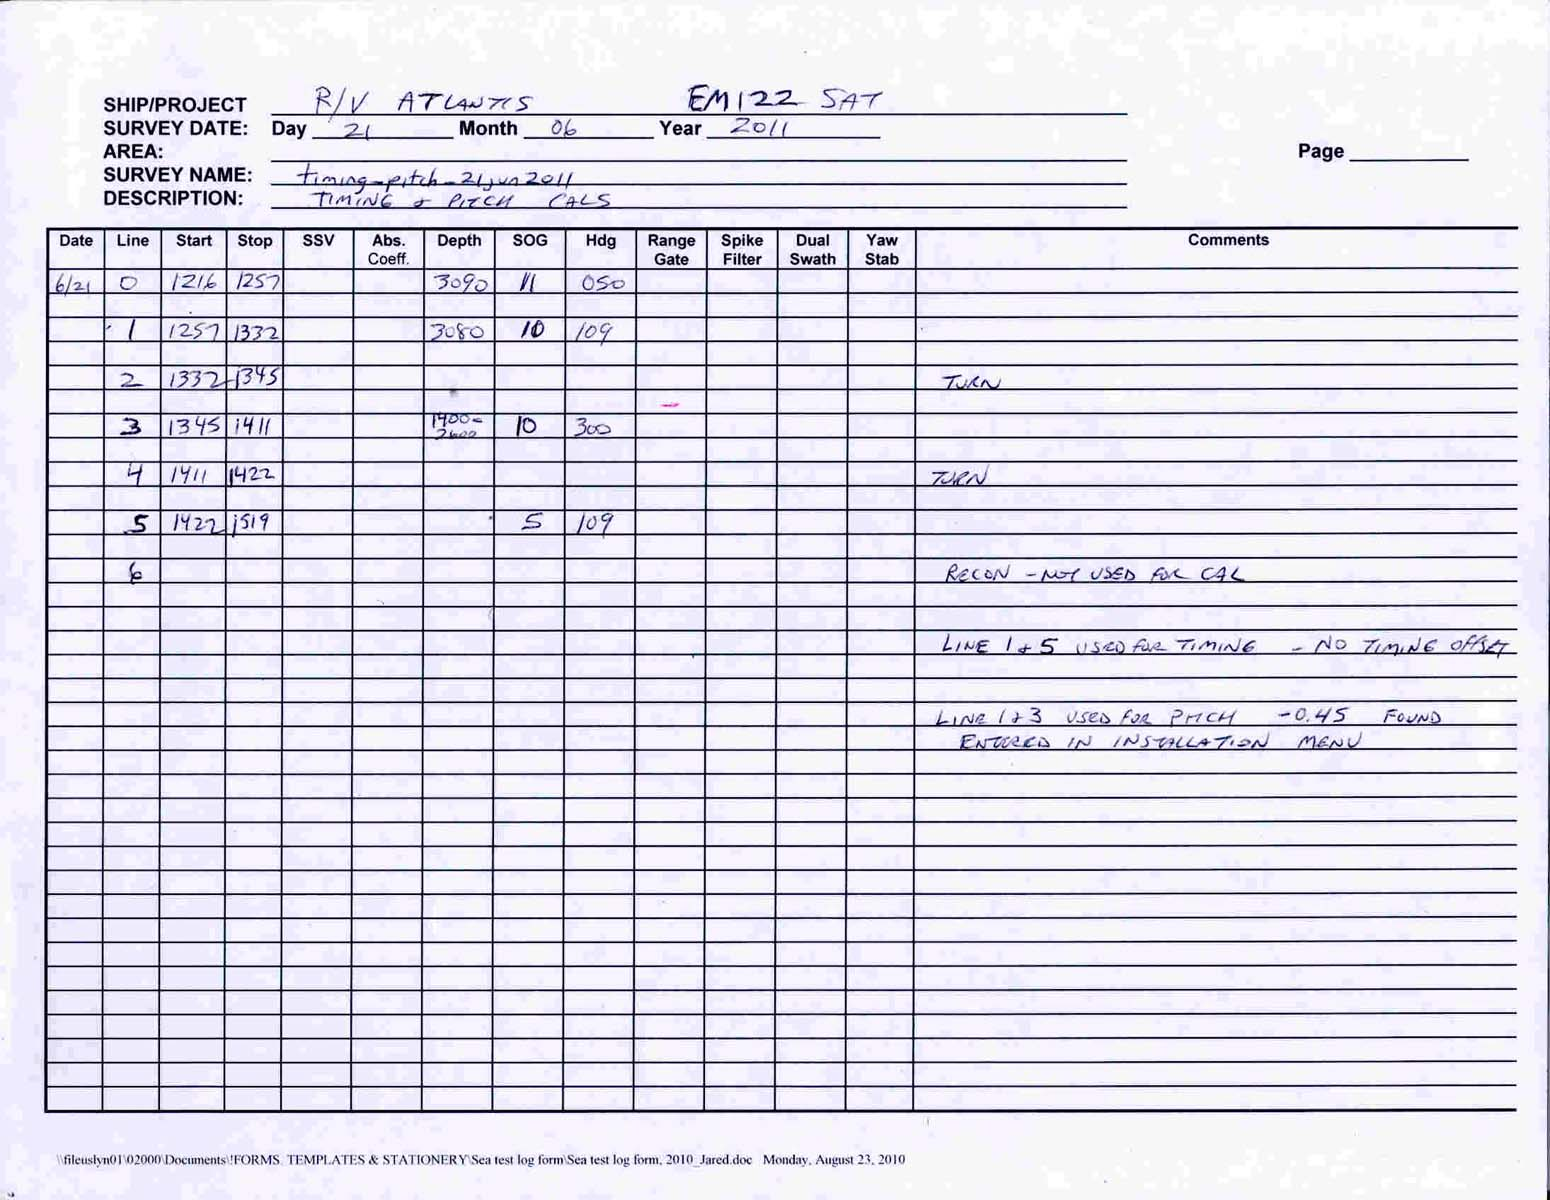 SHIP/PROJECT R/V ATLANTIS EM122 SAT
SURVEY DATE: Day 21 Month 06 Year 2011
AREA: Page
SURVEY NAME: timing-pitch-21jun2011
DESCRIPTION: TIMING & PITCH CALS
Date Line Start Stop SSV Abs. Coeff. Depth SOG Hdg Range Gate Spike Filter Dual Swath Yaw Stab Comments
6/21 0 1216 1257 3090 11 050
1 1257 1332 3080 10 109
2 1332 1345 TURN
3 1345 1411 1400-2600 10 300
4 1411 1422 TURN
5 1422 1519 5 109
6 RECON - NOT USED FOR CAL
LINE 1 & 5 USED FOR TIMING - NO TIMING OFFSET
LINE 1 & 3 USED FOR PITCH -0.45 FOUND
ENTERED IN INSTALLATION MENU
\\fileuslyn01\02000\Documents\!FORMS, TEMPLATES & STATIONERY\Sea test log form\Sea test log form, 2010_Jared.doc Monday, August 23, 2010